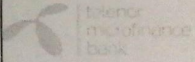 telenor
microfinance
bank